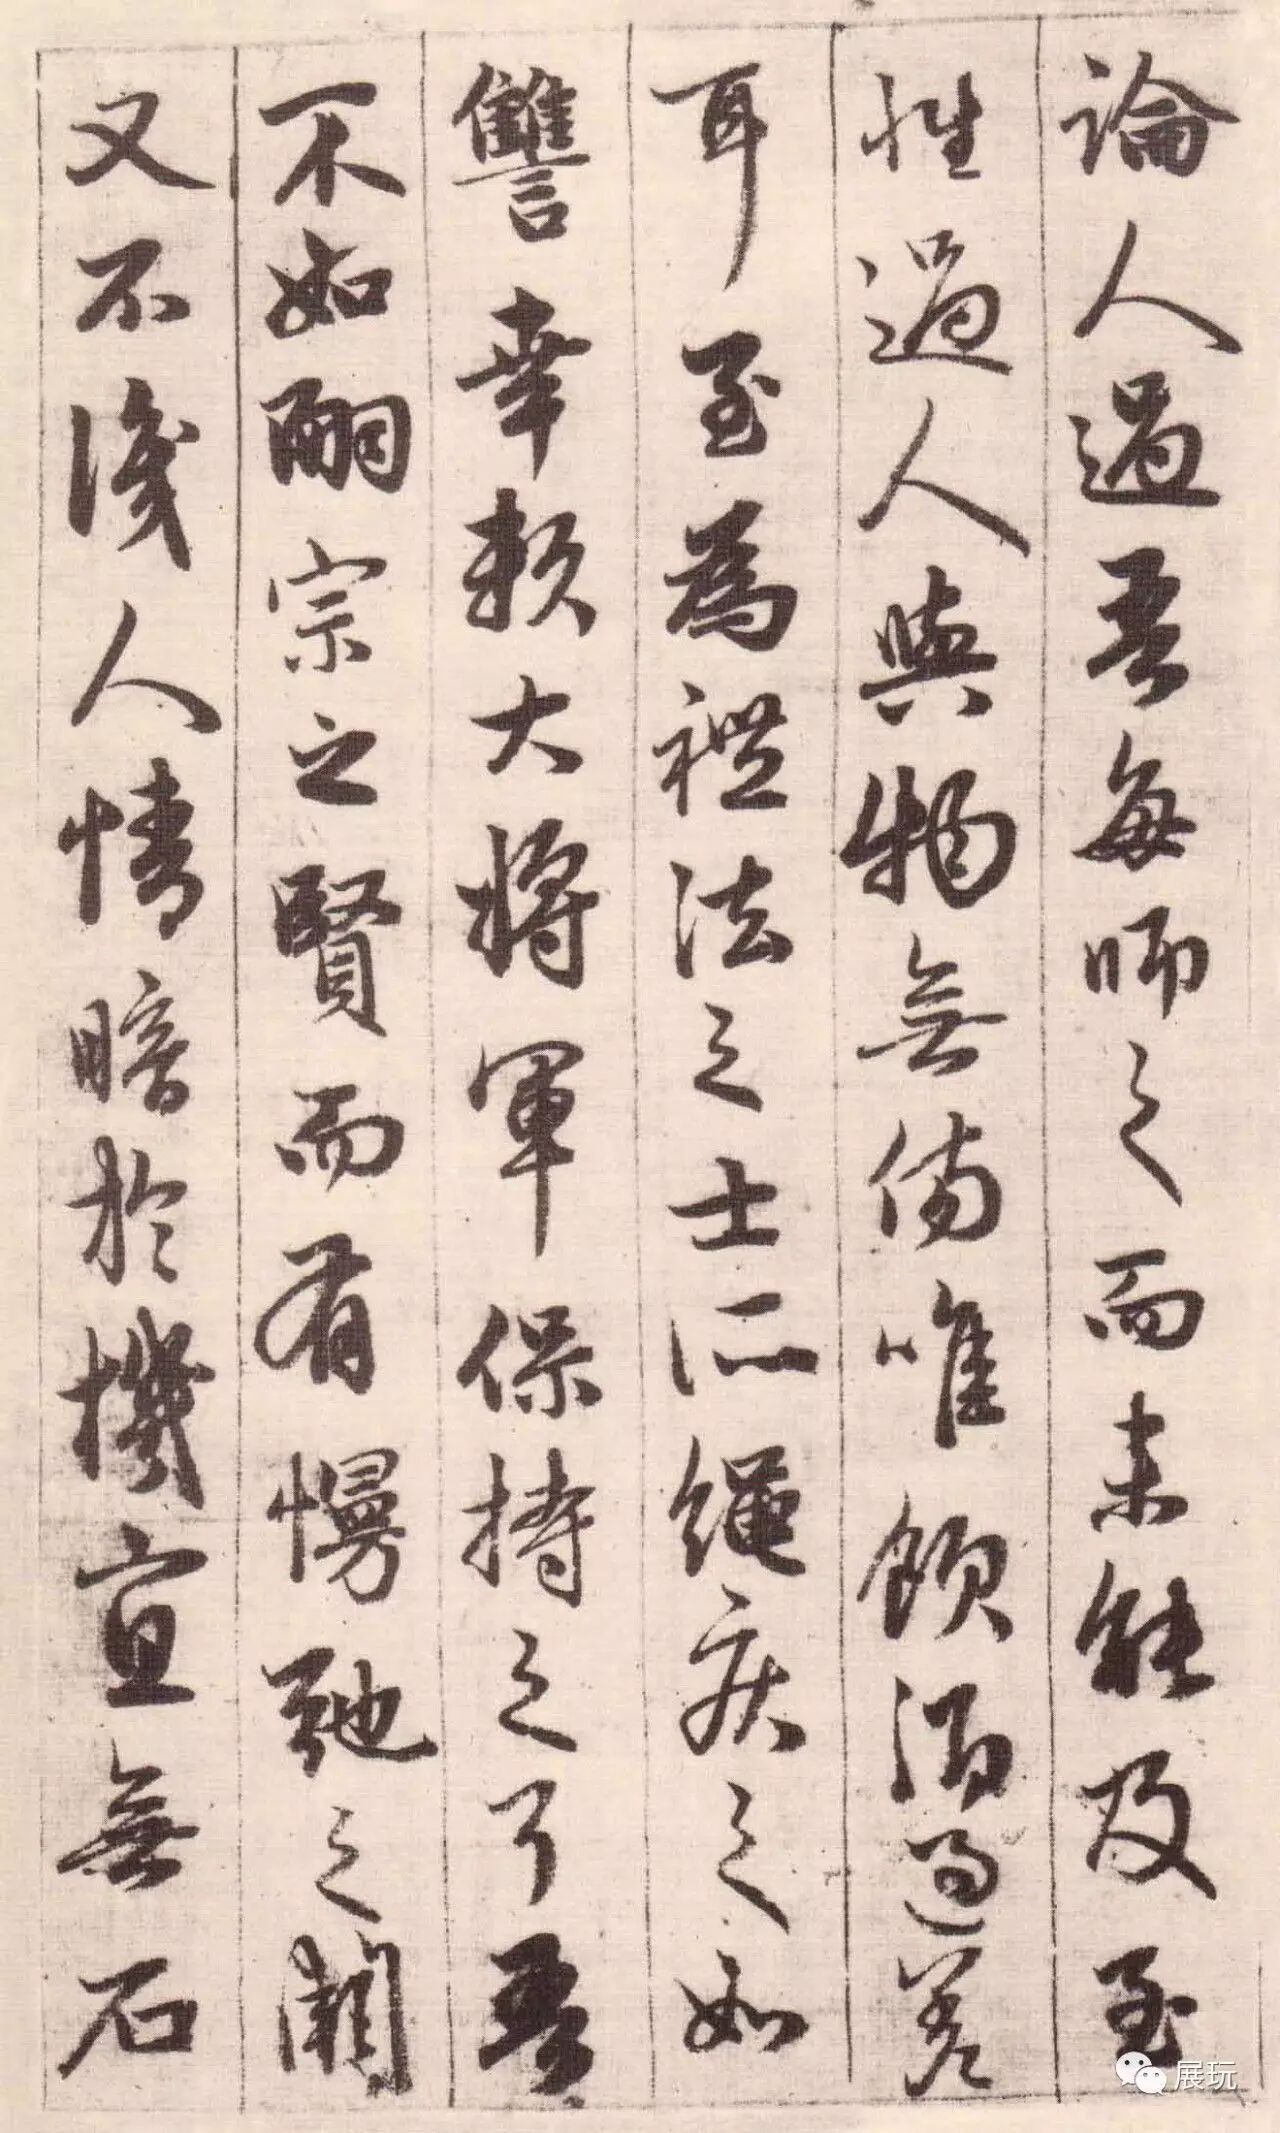 論人過吾每師之而未能及至
性過人與物無傷唯飲酒過差
耳至為禮法之士所繩疾之如
讎幸賴大將軍保持之耳吾
不如嗣宗之賢而有慢弛之闕
又不識人情暗於機宜無石
展玩